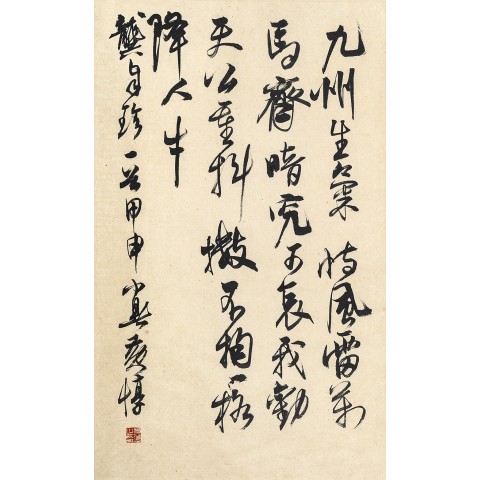 九州生氣恃風雷萬
馬齊喑究可哀我勸
天公重抖擻不拘一格
降人才
龔自珍一首甲申小寒黃惇